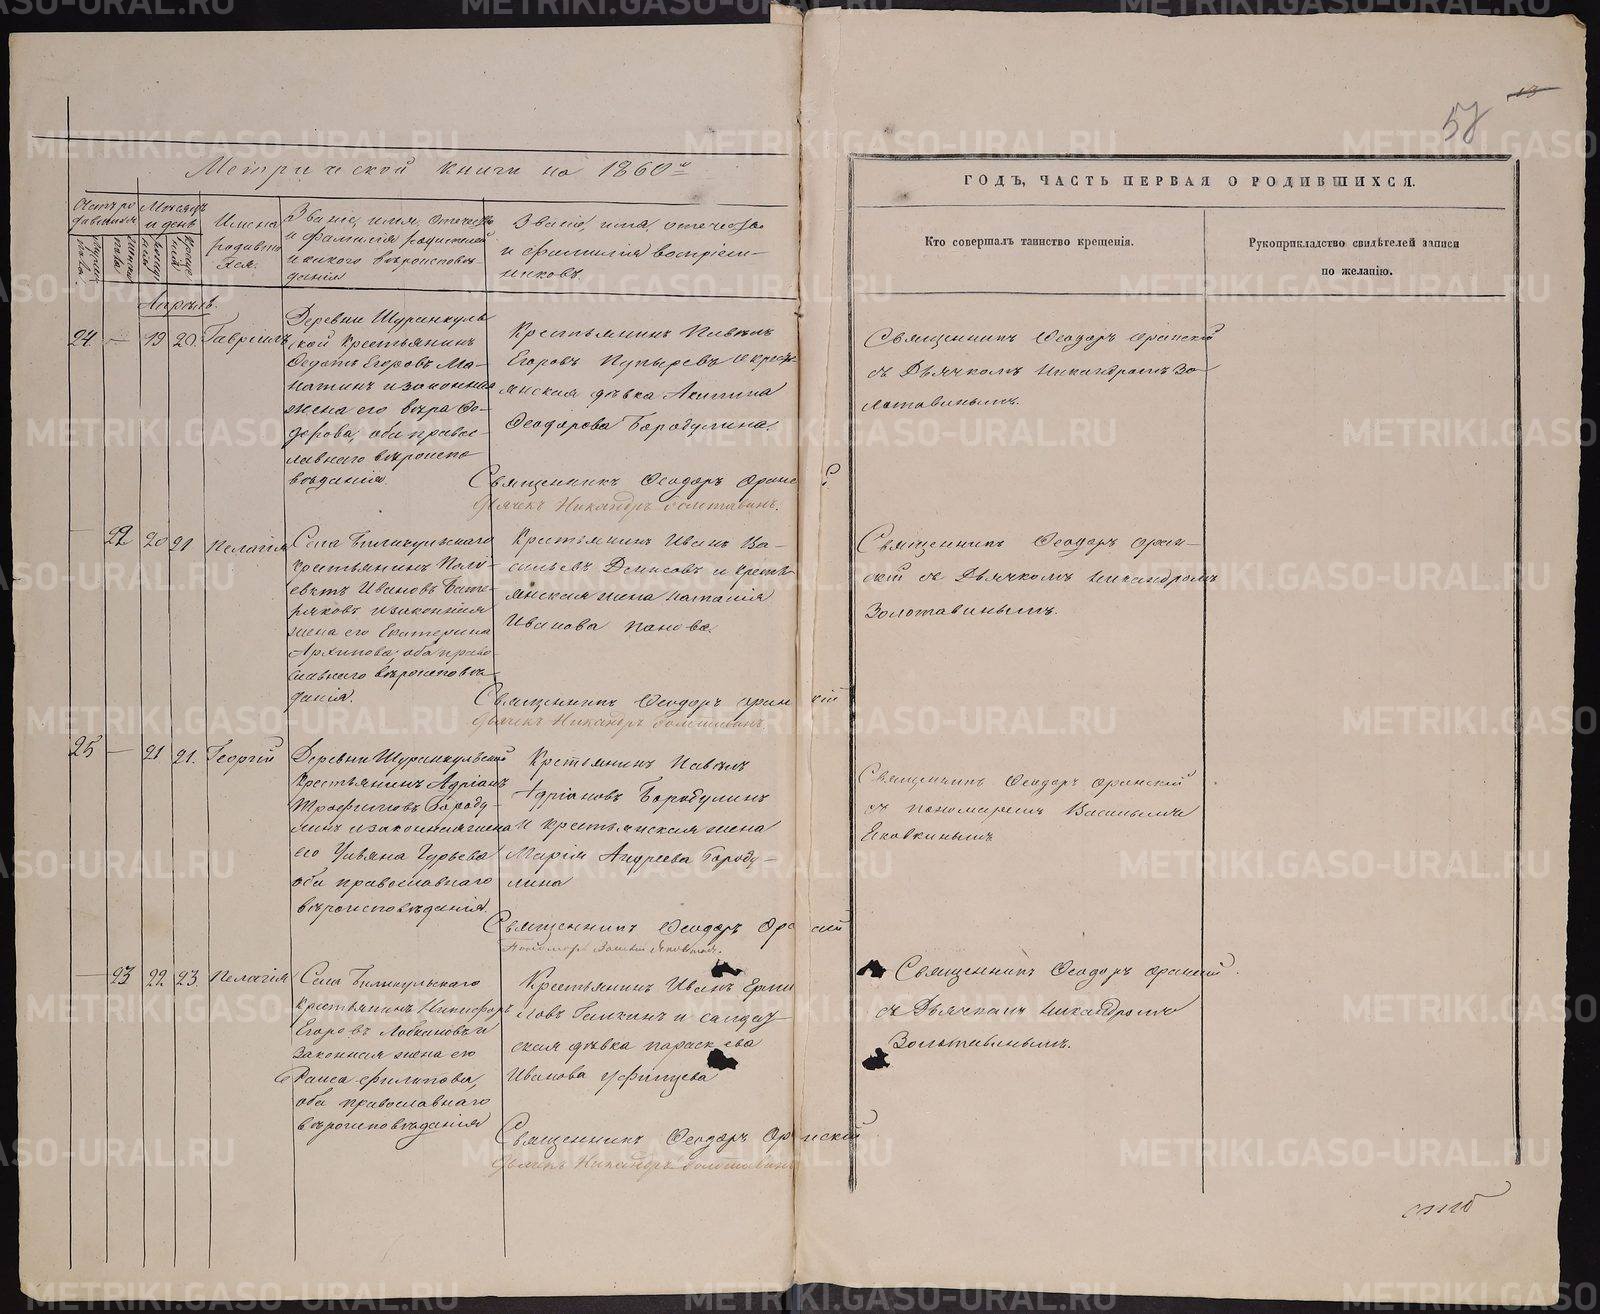 Метрической книги на 1860й
ГОДЪ, ЧАСТЬ ПЕРВАЯ О РОДИВШИХСЯ.
Счетъ ро
дившихся
Мужеска
пола.
Женска
пола
Мѣсяцъ
и день
рож
денія
креще
нія
Имена
родивших
ся.
Званіе, имя, отчество
и фамилія родителей
и какого вѣроисповѣ-
данія
Званіе, имя, отчество
и фамилія воспріем-
никовъ.
Кто совершалъ таинство крещенія.
Рукоприкладство свидѣтелей записи
по желанію.
Апрѣль.
24 — 19 20 Гавріилъ
Деревни Шуранкуль
ской крестьянинъ
Ѳедотъ Егоровъ Ма-
натинъ и законная
жена его Вѣра Ѳо-
дорова, оба право-
славнаго вѣроиспо
вѣданія
Крестьянинъ Павелъ
Егоровъ Пупыревъ и крестъ
янская дѣвка Акилина
Ѳеодорова Бородулина.
Священникъ Ѳеодоръ
Дьячекъ Никандръ Золотавинъ.
Священникъ Ѳеодоръ
съ Дьячкомъ Никандромъ Зо-
лотавинымъ.
— 22 20 21 Пелагія
Села
крестьянинъ Поли-
евктъ Ивановъ Бате-
ряковъ и законная
жена его Екатерина
Архипова, оба право
славнаго вѣроисповѣ-
данія.
Крестьянинъ Иванъ Ва-
сильевъ Денисовъ и кресть
янская жена Наталія
Иванова Панова.
Священникъ Ѳеодоръ
Дьячекъ Никандръ Золотавинъ.
Священникъ Ѳеодоръ
съ Дьячкомъ Никандромъ
Золотавинымъ.
25 — 21 21. Георгій
Деревни Шуранкульской
крестьянинъ Адріанъ
Трофимовъ Бороду-
линъ и законная жена
его Ульяна Гурьева
оба православнаго
вѣроисповѣданія.
Крестьянинъ Павелъ
Адріановъ Бородулинъ
и крестьянская жена
Марія Андреева Бороду-
лина
Священникъ Ѳеодоръ
Пономарь Василій Яковкинъ.
Священникъ Ѳеодоръ
съ пономаремъ Васильемъ
Яковкинымъ
— 23 22 23. Пелагія
Села
крестьянинъ Никифоръ
Егоровъ Лобановъ и
законная жена его
Раиса Филипова,
оба православнаго
вѣроисповѣданія
Крестьянинъ Иванъ Ерми
ловъ Галкинъ и салдат
ская дѣвка Параскева
Иванова Уфимцева
Священникъ Ѳеодоръ
Дьячекъ Никандръ Золотавинъ
Священникъ Ѳеодоръ
съ Дьячкомъ Никандромъ
Золотавинымъ.
METRIKI.GASO-URAL.RU